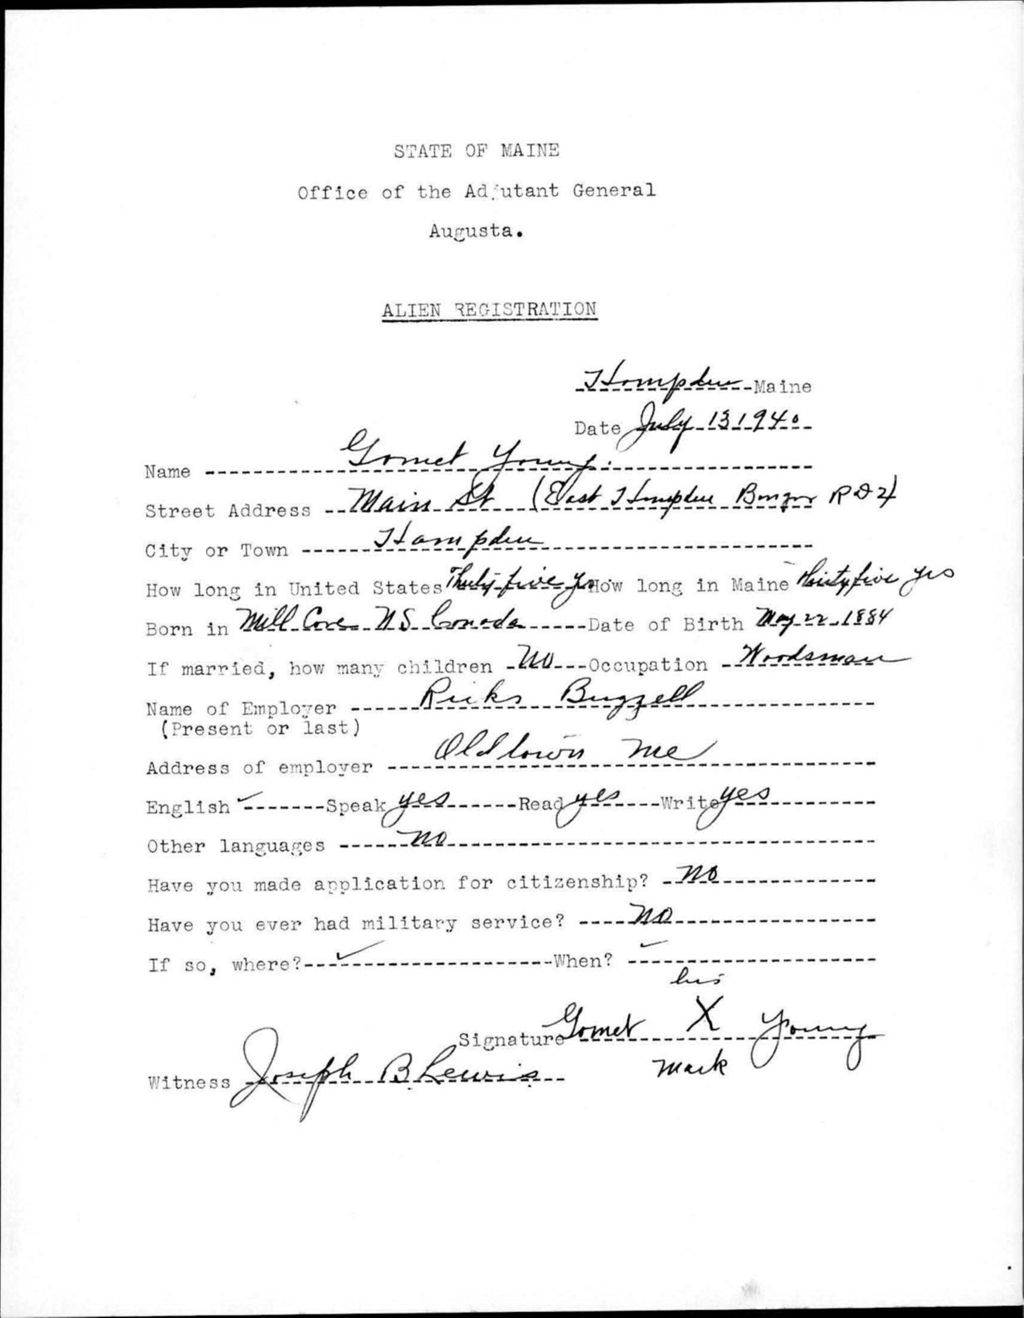 STATE OF MAINE
Office of the Adjutant General
Augusta.
ALIEN REGISTRATION
Hampden Maine
Date July 13 1940
Name Gomet Young.
Street Address Main St (East Hampden Bangor RD2)
City or Town Hampden
How long in United States Thirty-five yrs How long in Maine thirtyfive yrs
Born in Mill Cove N S Canada Date of Birth May 22, 1884
If married, how many children No Occupation Woodsman
Name of Employer Ricks Buzzell
(Present or last)
Address of employer Oldtown Me
English ✓ Speak yes Read yes Write yes
Other languages no
Have you made application for citizenship? No
Have you ever had military service? No
If so, where? ✓ When? ✓
his
Signature Gomet X Young
mark
Witness Joseph B Lewis